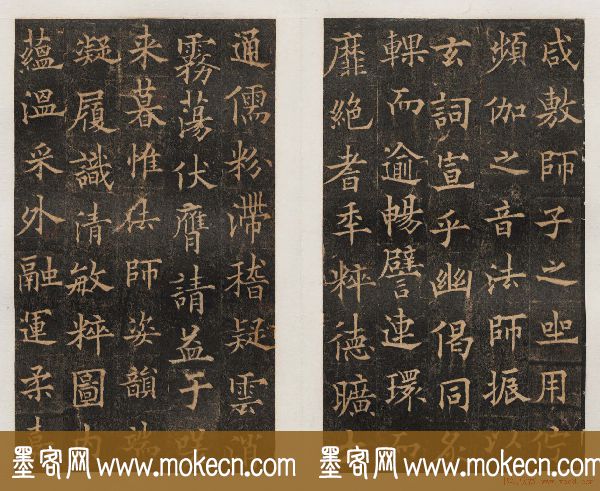 咸敷師子之坐用
頻伽之音法師振
玄詞宣乎幽偈同
輠而逾暢譬連環而
靡絶耆年粹德曠
通儒粉滯稽疑雲消
霧蕩伏膺請益于
来暮惟法師姿韻端
凝履識清敏粹圖内
蘊溫采外融運柔
墨客网 www.mokecn.com
墨客网 www.mokecn.com